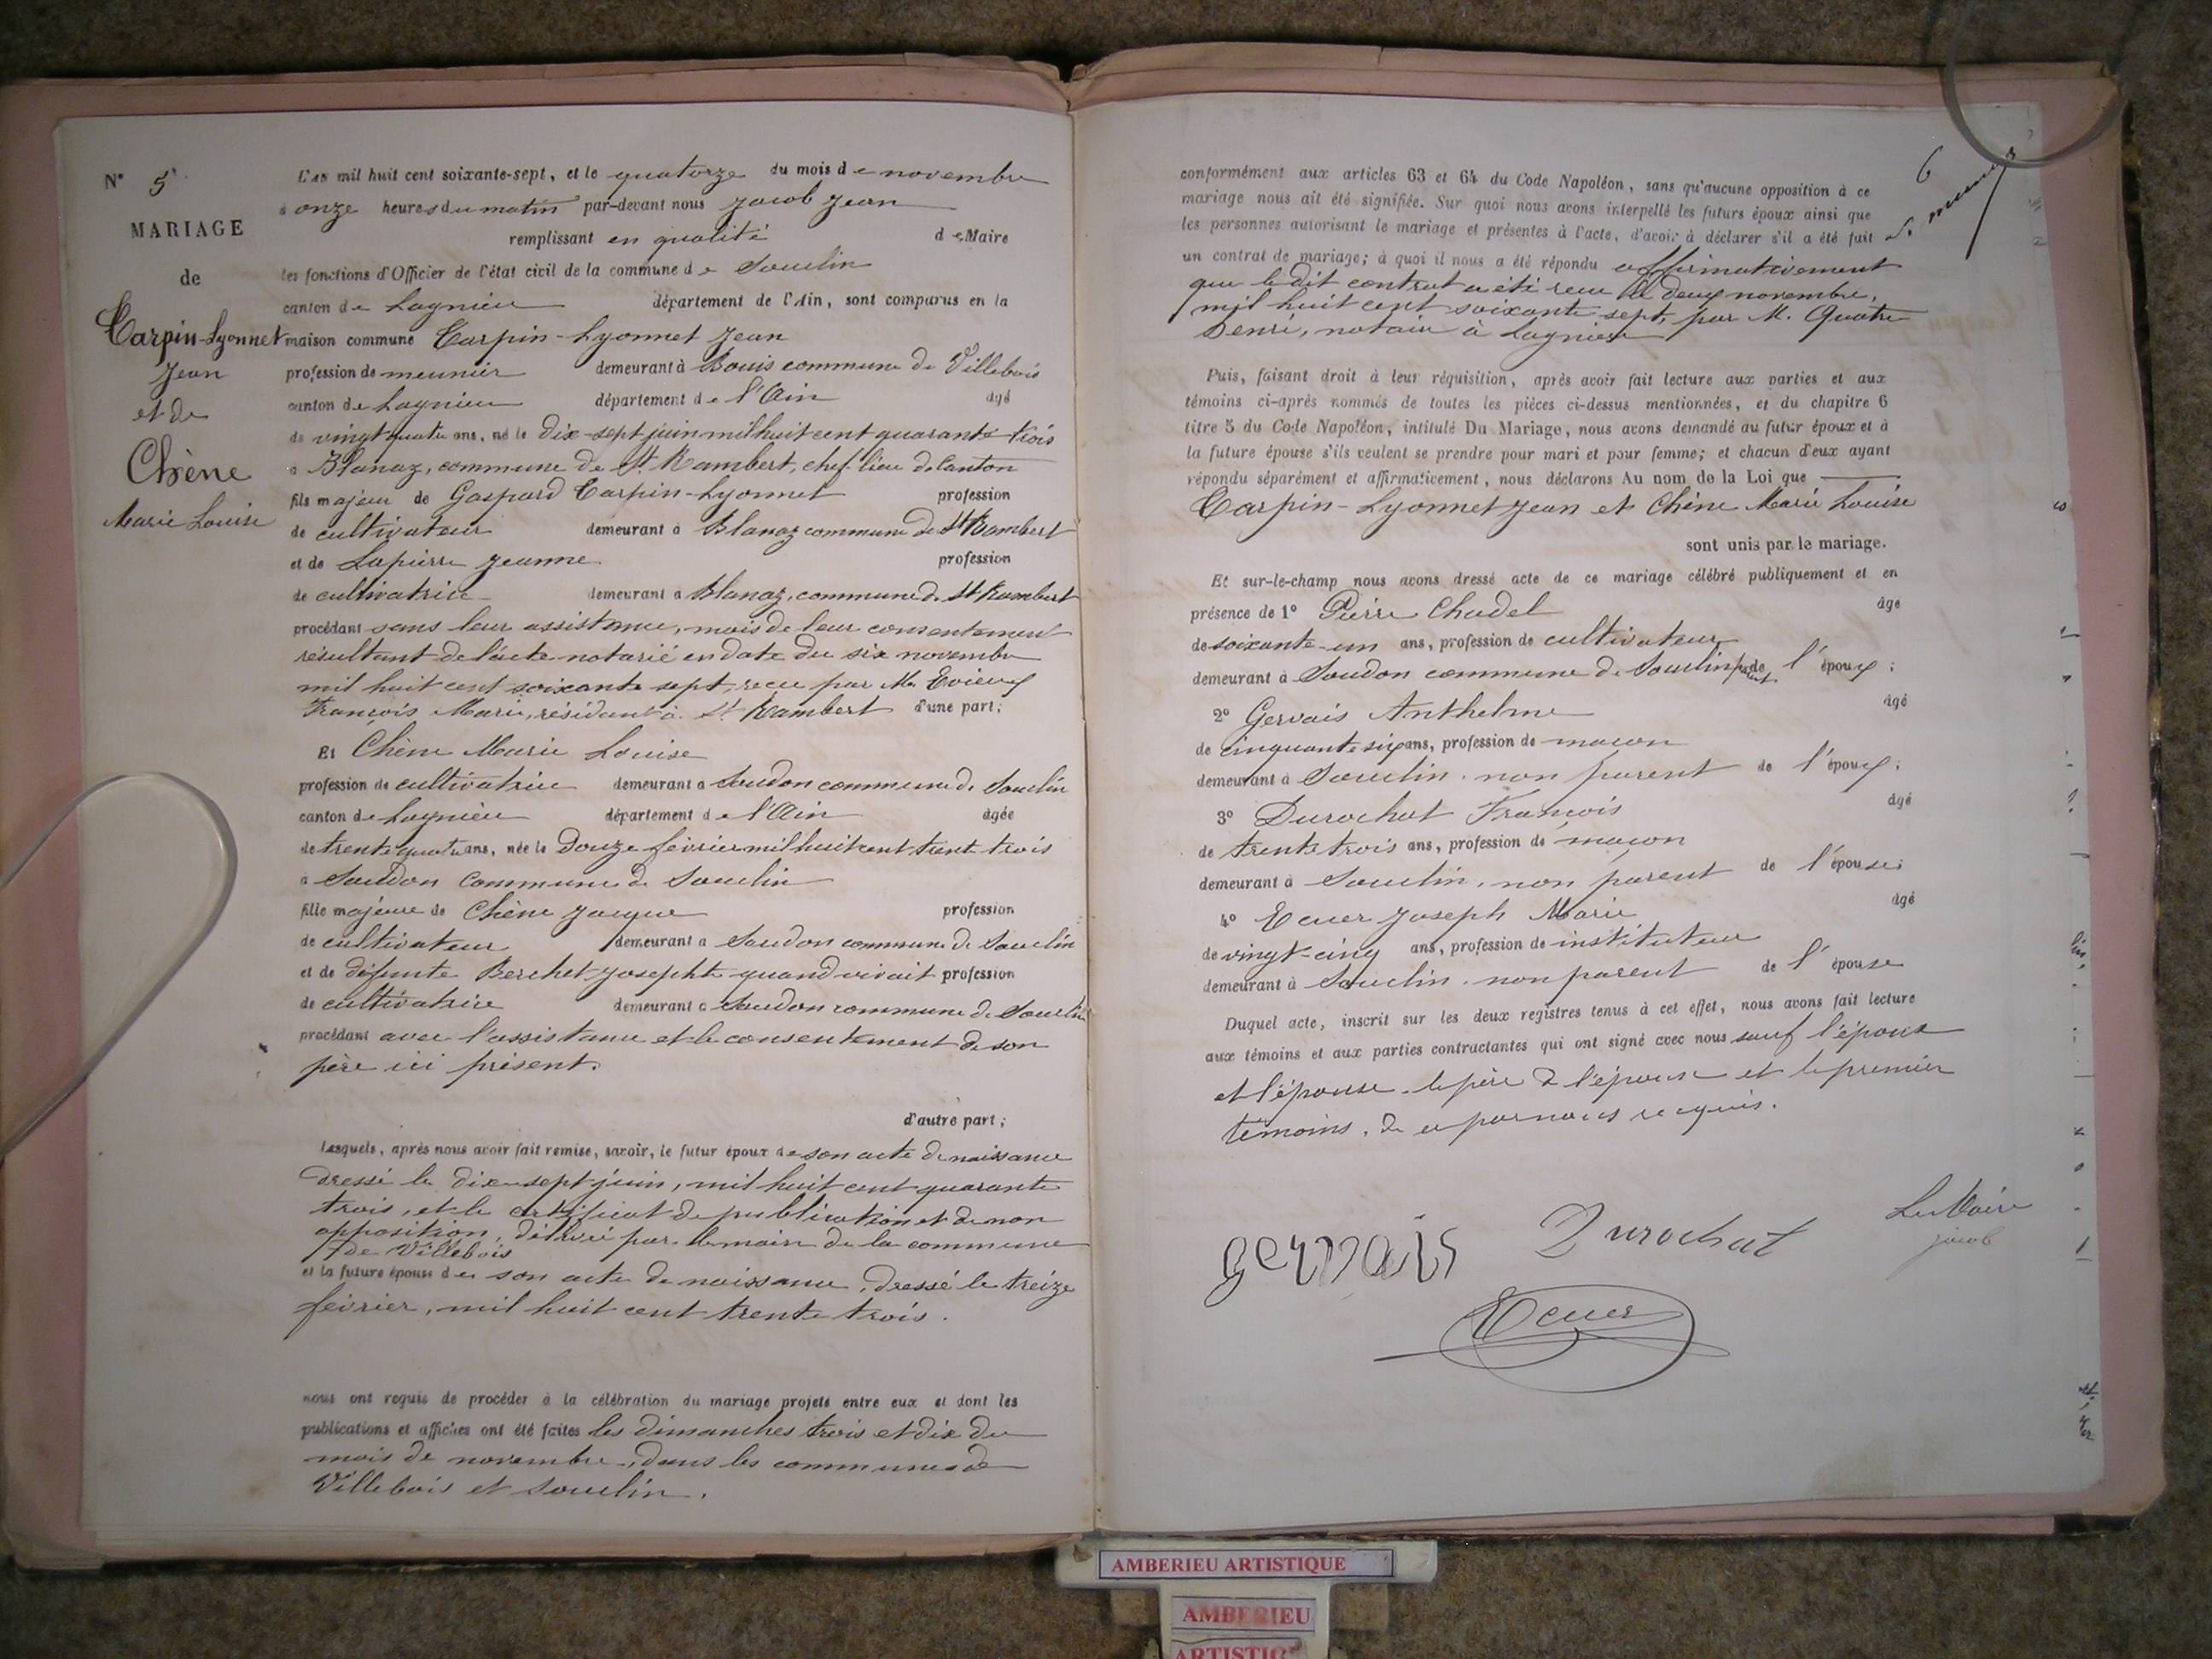 N° 5
MARIAGE
de
Carpin-Lyonnet
Jean
et de
Chêne
Marie Louise
L'an mil huit cent soixante-sept, et le quatorze du mois de novembre
à onze heures du matin par-devant nous Jacob Jean
remplissant en qualité de Maire
les fonctions d'Officier de l'état civil de la commune de Souclin
canton de Lagnieu département de l'Ain, sont comparus en la
maison commune Carpin-Lyonnet Jean
profession de meunier demeurant à Bouis commune de Villebois
canton de Lagnieu département de l'Ain âgé
de vingt quatre ans, né le dix-sept juin mil huit cent quarante trois
à Blanaz, commune de St Rambert, chef-lieu de Canton
fils majeur de Gaspard Carpin-Lyonnet profession
de cultivateur demeurant à Blanaz commune de St Rambert
et de Lapierre Jeanne profession
de cultivatrice demeurant à Blanaz, commune de St Rambert
procédant sans leur assistance, mais de leur consentement
résultant de l'acte notarié en date du six novembre
mil huit cent soixante sept, reçu par Me
François Marie, résidant à St Rambert d'une part;
Et Chêne Marie Louise
profession de cultivatrice demeurant à Soudon commune de Souclin
canton de Lagnieu département de l'Ain âgée
de trente quatre ans, née le douze février mil huit cent trente trois
à Soudon Commune de Souclin
fille majeure de Chêne Jacque profession
de cultivateur demeurant à Soudon commune de Souclin
et de défunte Berchet Josephte quand vivait profession
de cultivatrice demeurant à Soudon commune de Souclin
procédant avec l'assistance et le consentement de son
père ici présent.
d'autre part;
Lesquels, après nous avoir fait remise, savoir, le futur époux de son acte de naissance
dressé le dix-sept juin, mil huit cent quarante
trois, et le certificat de publication et de non
opposition, délivré par le maire de la commune
de Villebois
et la future épouse de son acte de naissance, dressé le treize
février, mil huit cent trente trois.
nous ont requis de procéder à la célébration du mariage projeté entre eux et dont les
publications et affiches ont été faites les dimanches trois et dix du
mois de novembre, dans les communes de
Villebois et Souclin.
6
conformément aux articles 63 et 64 du Code Napoléon, sans qu'aucune opposition à ce
mariage nous ait été signifiée. Sur quoi nous avons interpellé les futurs époux ainsi que
les personnes autorisant le mariage et présentes à l'acte, d'avoir à déclarer s'il a été fait
un contrat de mariage; à quoi il nous a été répondu affirmativement
que le dit contrat a été reçu le deux novembre,
mil huit cent soixante sept, par M. Quatre
Denri, notaire à Lagnieu
Puis, faisant droit à leur réquisition, après avoir fait lecture aux parties et aux
témoins ci-après nommés de toutes les pièces ci-dessus mentionnées, et du chapitre 6
titre 5 du Code Napoléon, intitulé Du Mariage, nous avons demandé au futur époux et à
la future épouse s'ils veulent se prendre pour mari et pour femme; et chacun d'eux ayant
répondu séparément et affirmativement, nous déclarons Au nom de la Loi que
Carpin-Lyonnet Jean et Chêne Marie Louise
sont unis par le mariage.
Et sur-le-champ nous avons dressé acte de ce mariage célébré publiquement et en
présence de 1° Pierre Chadel âgé
de soixante-un ans, profession de cultivateur
demeurant à Soudon commune de Souclin parent de l'époux;
2° Gervais Anthelme âgé
de cinquante six ans, profession de maçon
demeurant à Souclin, non parent de l'époux;
3° Durochat François âgé
de trente trois ans, profession de maçon
demeurant à Souclin, non parent de l'épouse;
4° Ecuer Joseph Marie âgé
de vingt-cinq ans, profession de instituteur
demeurant à Souclin, non parent de l'épouse
Duquel acte, inscrit sur les deux registres tenus à cet effet, nous avons fait lecture
aux témoins et aux parties contractantes qui ont signé avec nous sauf l'époux
et l'épouse, le père de l'épouse et le premier
témoins, de ce par nous requis.
Le Maire
Jacob
Durochat
gervais
Ecuer
AMBERIEU ARTISTIQUE
AMBERIEU
ARTISTIQ